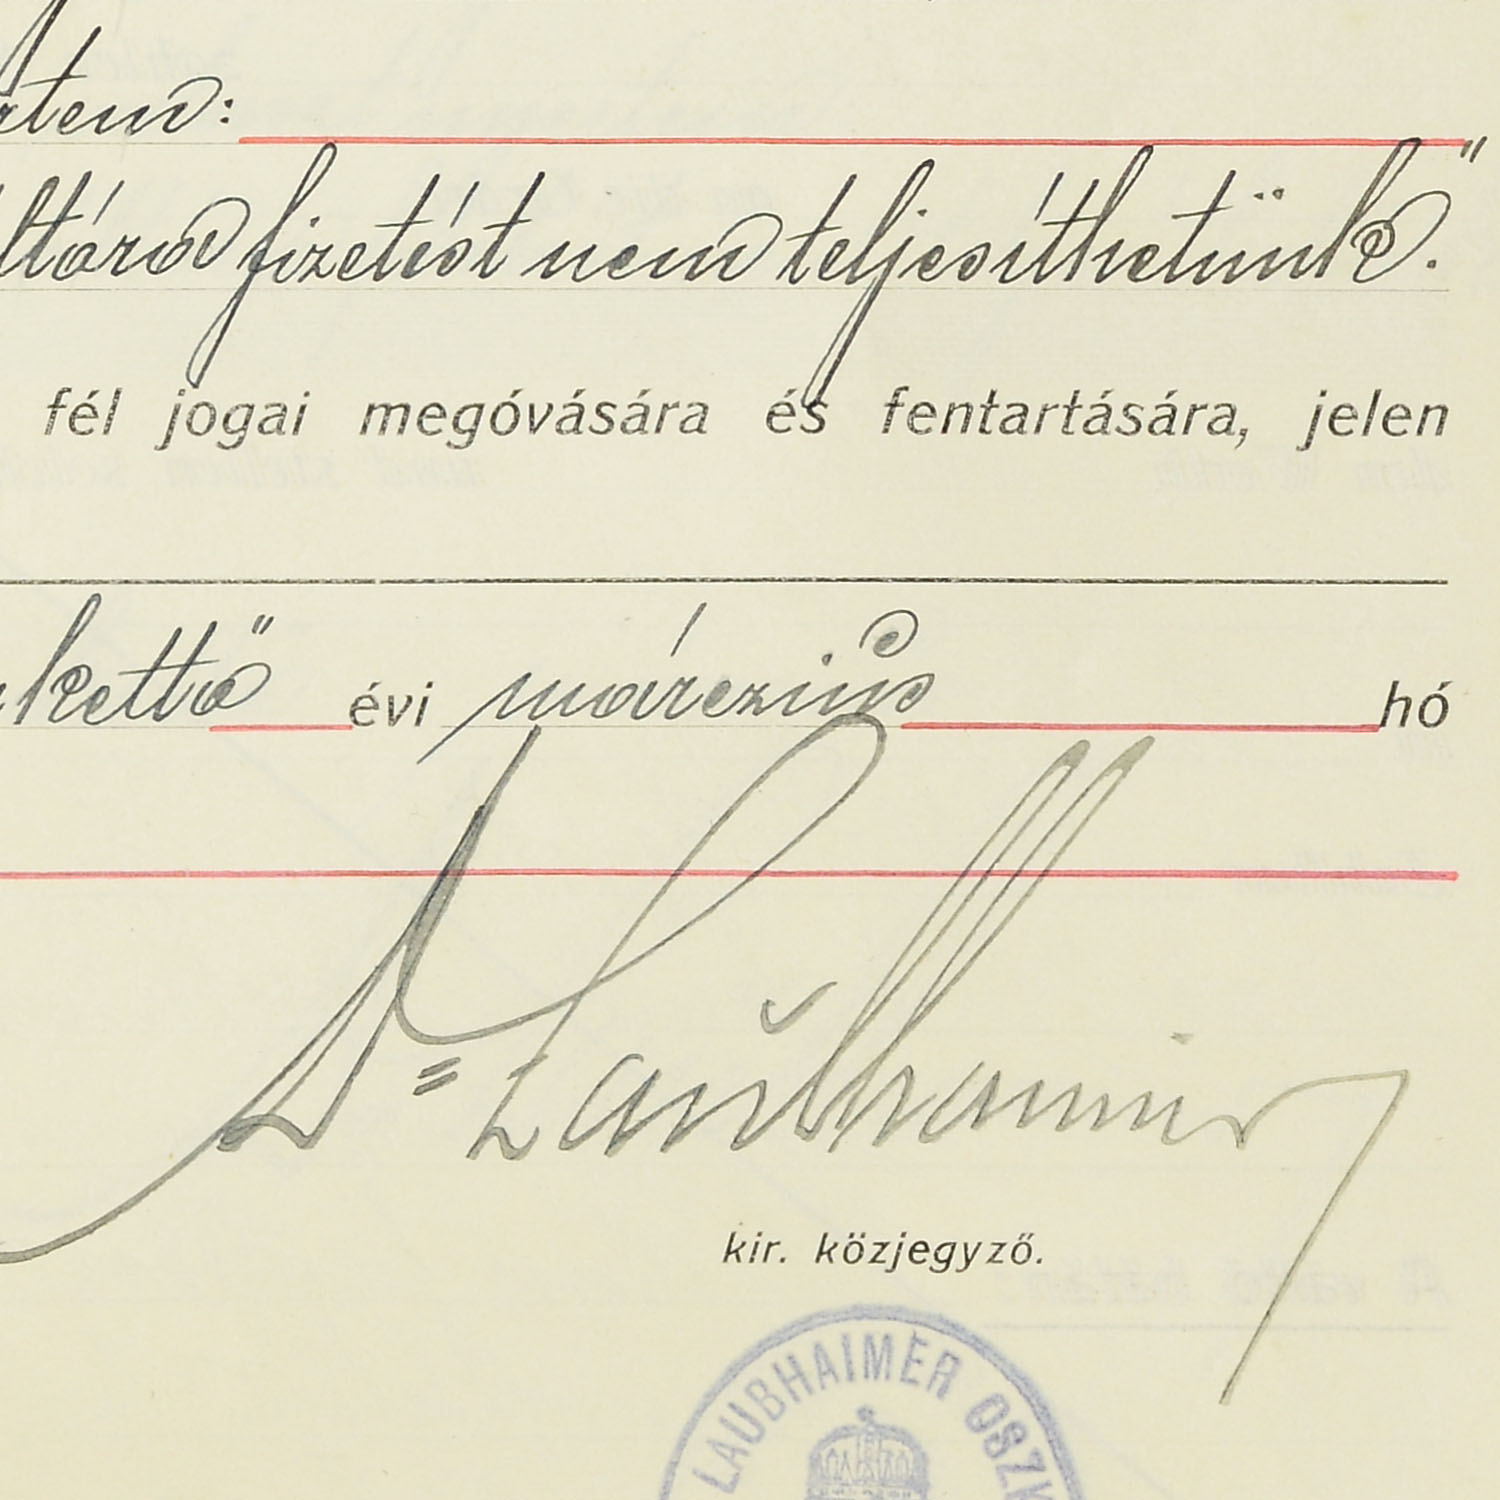 fizetést nem teljesíthetünk."
fél jogai megóvására és fentartására, jelen
kettő évi márczius hó
Dr Laubhaimer
kir. közjegyző.
LAUBHAIMER